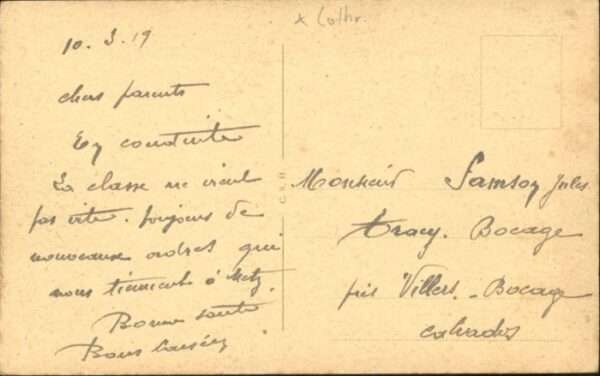 x Lothr.
10. 3. 19
chers parents
La classe ne vient
pas vite. toujours de
nouveaux ordres qui
nous tiennent à Metz.
Bonne santé
Bons baisers
C & H
Monsieur Samson Jules
Tracy. Bocage
près Villers. Bocage
Calvados